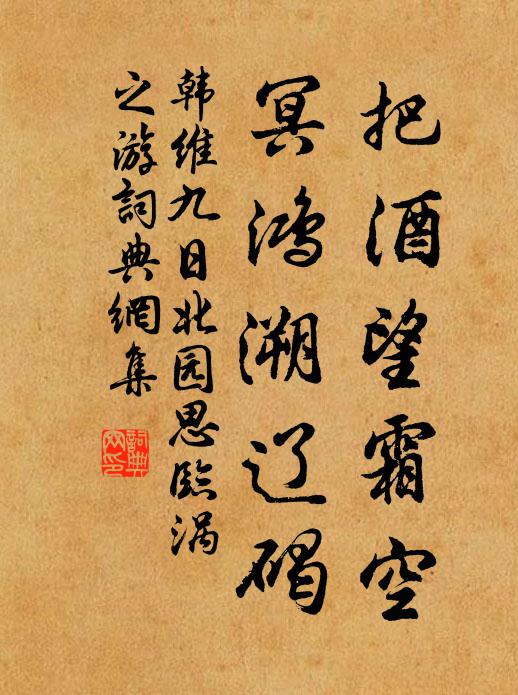 把酒望霜空
冥鸿溯辽碣
韩维九日北园思临涡
之游詞典網集
詞典
网印